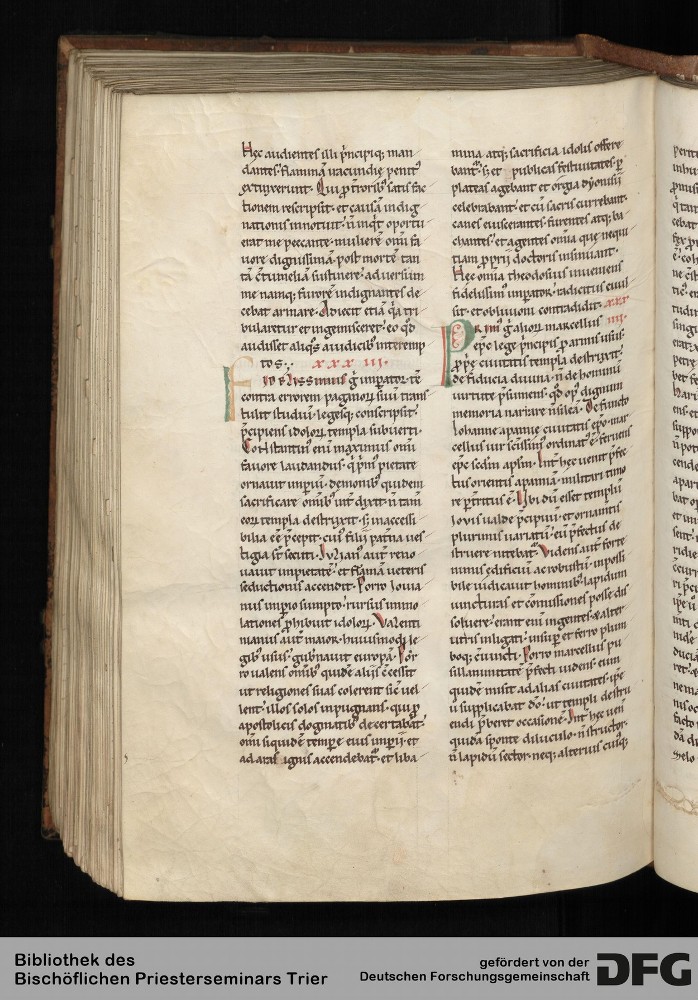 Hęc audientes illi p̄ncipiq; man
dantes. flammā iracundię penitꝰ
extinxerunt. Qui ꝓ erroribꝰ satis fac
tionem rescripsit. et causā indig
nationis innotuit. n̄ inqͥt oportu
erat me peccante. mulierē om̄i fa
uore dignissimā. post mortē tan
tā c̄tumeliā sustinere. aduersum
me namq; furorē indignantes de
cebat armare. Adiecit etiā qͣ tri
bularetur et ingemisceret. eo qd̓
audisset aliqͦs a iudicibꝰ interemp
tos. xxxiii.
Fidelissimus g̓ imꝑator. tē
contra errorem paganoꝝ suū trans
tulit studiū. legesq; conscripsit.
p̄cipiens idoloꝝ templa subuerti.
Constantinus enī maximus om̄i
fauore laudandus. qͥ pͥmꝰ pietate
ornauit imꝑiū. demonibꝰ quidem
sacrificare om̄ibꝰ int̓dixit. n̄ tam̄
eoꝝ templa destruxit. s; inaccessi
bilia eē p̄cepit. cuiꝰ filii patͥna ues
tigia s̄t secuti. Iulianꝰ aut̄ reno
uauit impietatē. et flāmā ueteris
seductionis accendit. Porro Ioua
nus imꝑio sumpto. rursus immo
lationes ꝓhibuit idoloꝝ. Valenti
nianus aut̄ maior. huiusmodi le
gibꝰ usus. gub̓nauit europā. Por
ro ualens om̄ibꝰ quidē aliis c̄cessit
ut religiones suas colerent sic̄ uel
lent. illos solos impugnans. qui ꝓ
apostolicis dogmatibꝰ decertabāt.
om̄i siquidē tempꝰe eius imꝑii. et
ad aras ignis accendebatᷣ. et liba
mina atq; sacrificia idolis offere
bantᷣ. s; et publicas festiuitates ꝑ
plateas agebant et orgia dyonisii
celebrabant. et cū sacris currebant.
canes euiscerantes. furentes atq; ba
chantes. et agentes omīa quę nequi
tiam ꝓprii doctoris insinuant.
Hęc omīa theodosius inueniens
fidelissimꝰ imꝑator. radicitus euul
sit. et obliuioni contradidit. xxx
iiii.
Primꝰ g̓ alioꝝ marcellus
ep̄c lege p̄ncipis ꝓ armis usus.
ꝓprię ciuitatis templa destruxit.
de fiducia diuina. n̄ de hominū
uirtute p̄sumens. qd̓ opꝰ dignum
memoria narrare n̄ silea. Defuncto
Iohanne apamię ciuitatis ep̄o. mar
cellus uir scīssimꝰ ordinatᷣ ē. feruens
ep̄c secdm̄ apl̄m. Int̓ hęc uenit p̄fec
tus orientis apamiā. militari timo
re ꝑtritus ē. Ubi dū esset templū
Iouis ualde p̄cipuū. et ornamtis
plurimis uariatū. eū p̄fectus de
struere nitebatᷣ. Videns aut̄ forte
nimis edificiū ac robustū. inpossi
bile iudicauit hominibꝰ lapidum
iuncturas et cōmissiones posse dis
soluere. erant enī ingentes & alter
utris inligati. insuꝑ et ferro plum
boq; c̄iuncti. Porro marcellus pu
sillanimitate p̄fecti uidens. eum
quidē misit ad alias ciuitates. ip̄e
ū supplicabat dō. ut templi destru
endi p̄beret occasionē. Int̓ hęc ueni
quidā sponte diluculo. n̄ structor.
n̄ lapidū sector. neq; alterius cuiꝰq;
Bibliothek des
Bischöflichen Priesterseminars Trier
gefördert von der
Deutschen Forschungsgemeinschaft
DFG